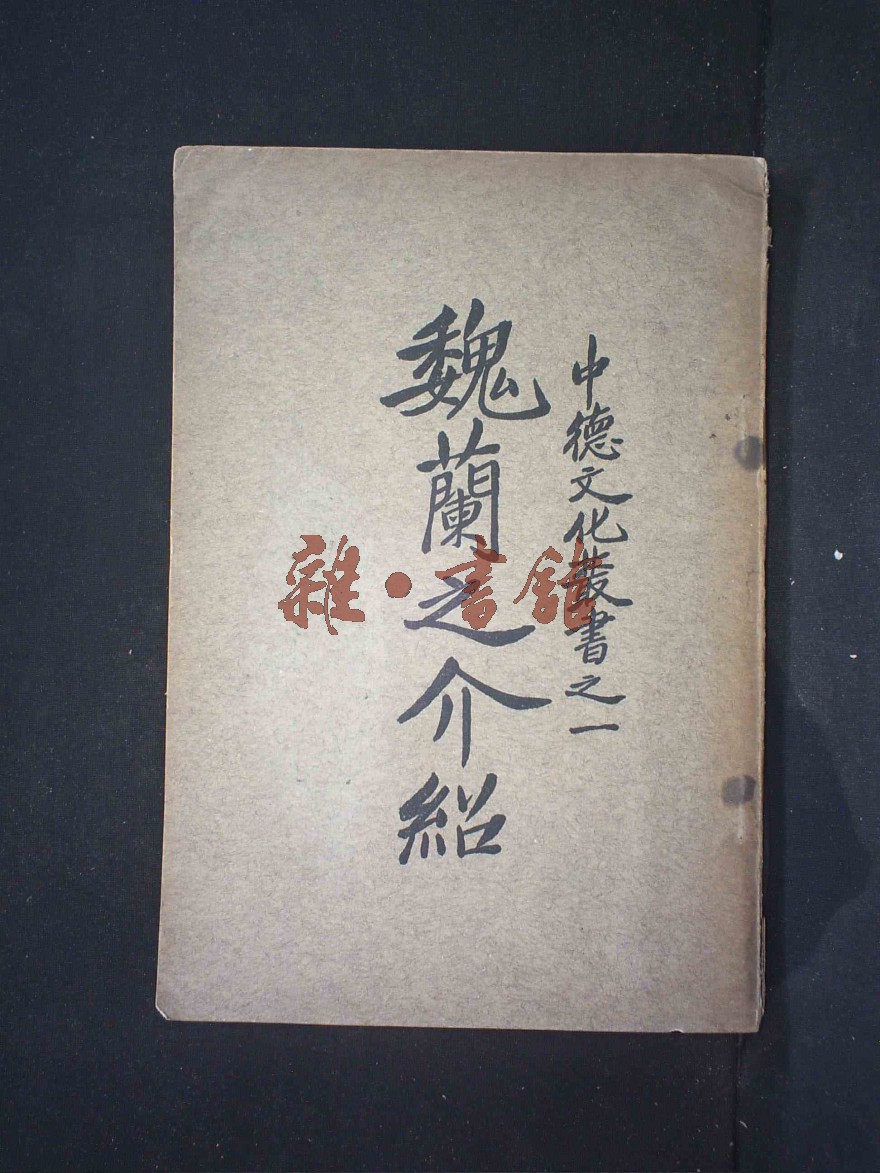 中德文化叢書之一
魏蘭之介紹
雜·書館